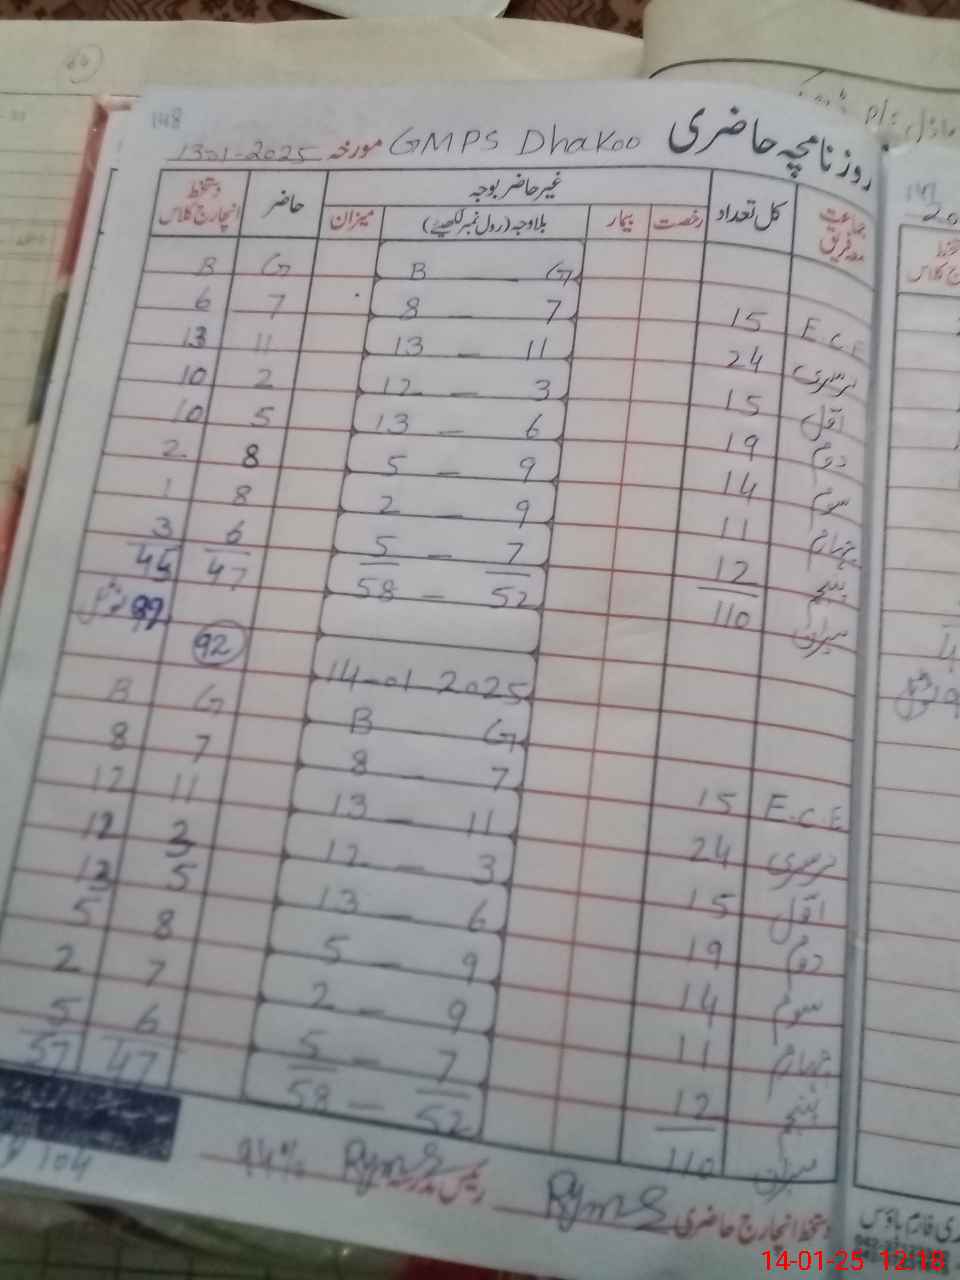 148
روزنامچہ حاضری GMPS Dhakoo مورخہ 13-01-2025
جماعت مع فریق کل تعداد غیر حاضر بوجہ حاضر دستخط انچارج کلاس
رخصت بیمار بلاوجہ (رول نمبر لکھیئے) میزان
B G B G
E.C.E 15 8 — 7 6 7
نرسری 24 13 — 11 13 11
اوّل 15 12 — 3 10 2
دوم 19 13 — 6 10 5
سوم 14 5 — 9 2 8
چہارم 11 2 — 9 1 8
پنجم 12 5 — 7 3 6
میزان 110 58 — 52 45 47
92
14-01-2025
B G B G
E.C.E 15 8 — 7 8 7
نرسری 24 13 — 11 12 11
اوّل 15 12 — 3 12 3
دوم 19 13 — 6 13 5
سوم 14 5 — 9 5 8
چہارم 11 2 — 9 2 7
پنجم 12 5 — 7 5 6
میزان 110 58 — 52 57 47
104
94%
دستخط انچارج حاضری رئیس مدرسہ
14-01-25 12:18